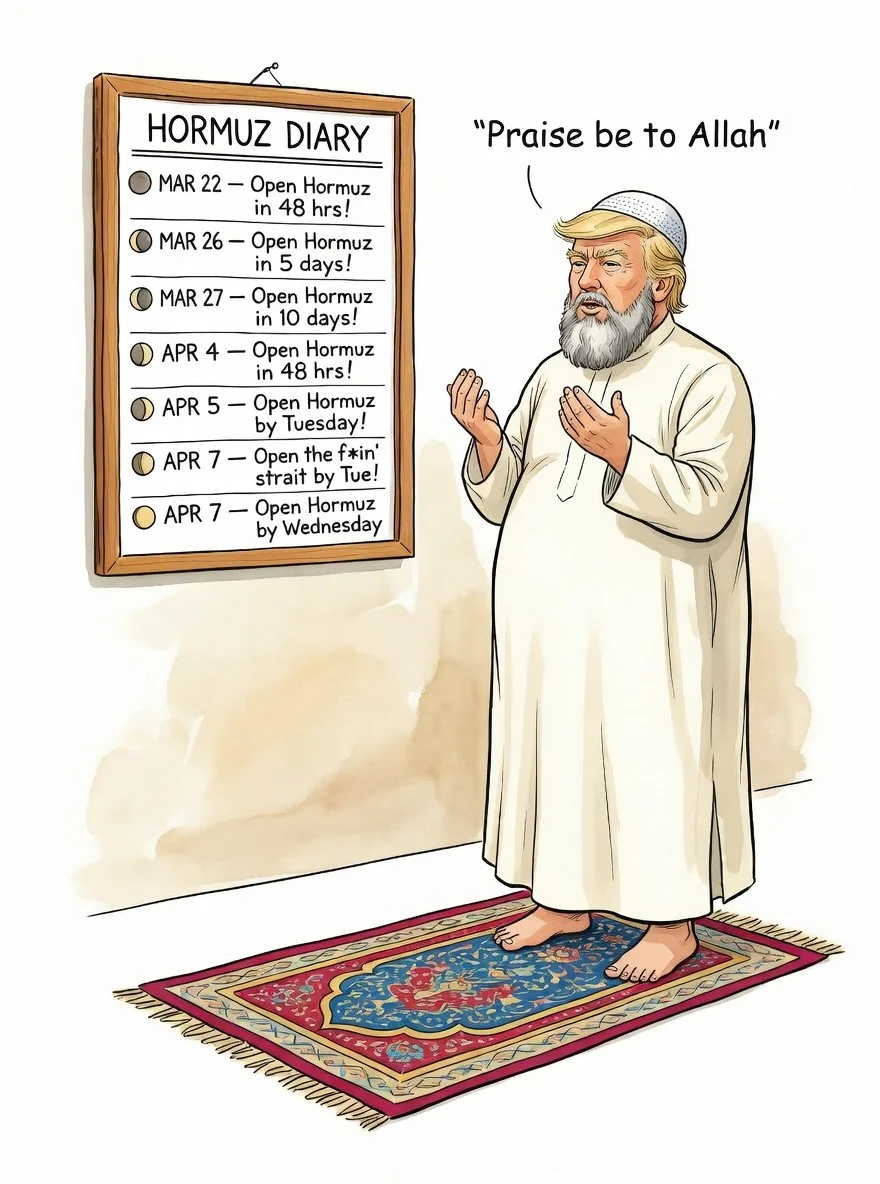 HORMUZ DIARY
MAR 22 — Open Hormuz
in 48 hrs!
MAR 26 — Open Hormuz
in 5 days!
MAR 27 — Open Hormuz
in 10 days!
APR 4 — Open Hormuz
in 48 hrs!
APR 5 — Open Hormuz
by Tuesday!
APR 7 — Open the f*in'
strait by Tue!
APR 7 — Open Hormuz
by Wednesday
“Praise be to Allah”